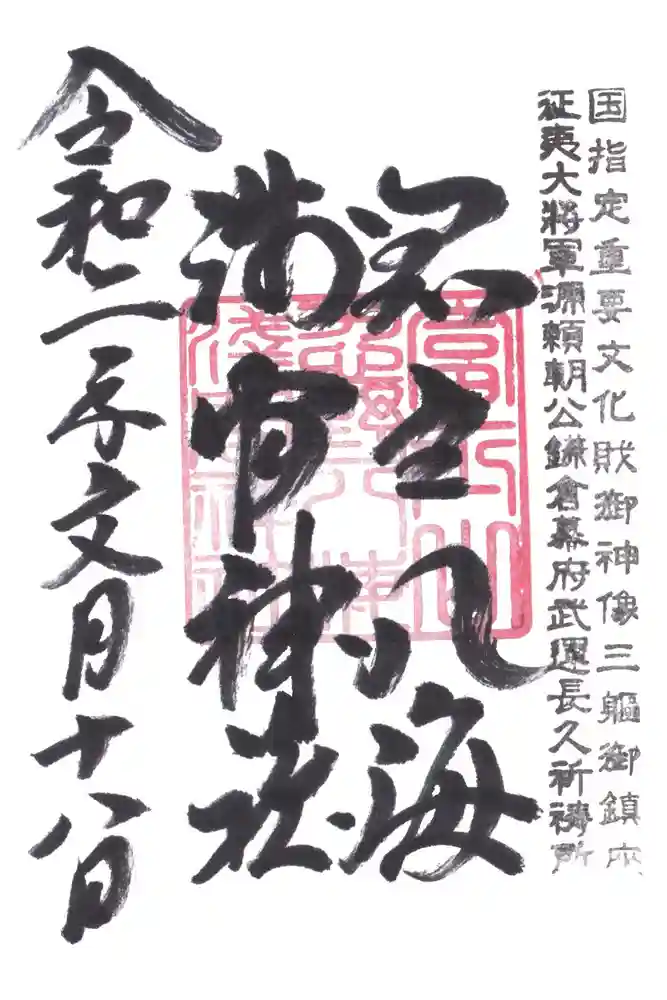 国指定重要文化財御神像三軀御鎮座
征夷大將軍源頼朝公鎌倉幕府武運長久祈祷所
忍野八海
浅間神社
令和二年文月十八日